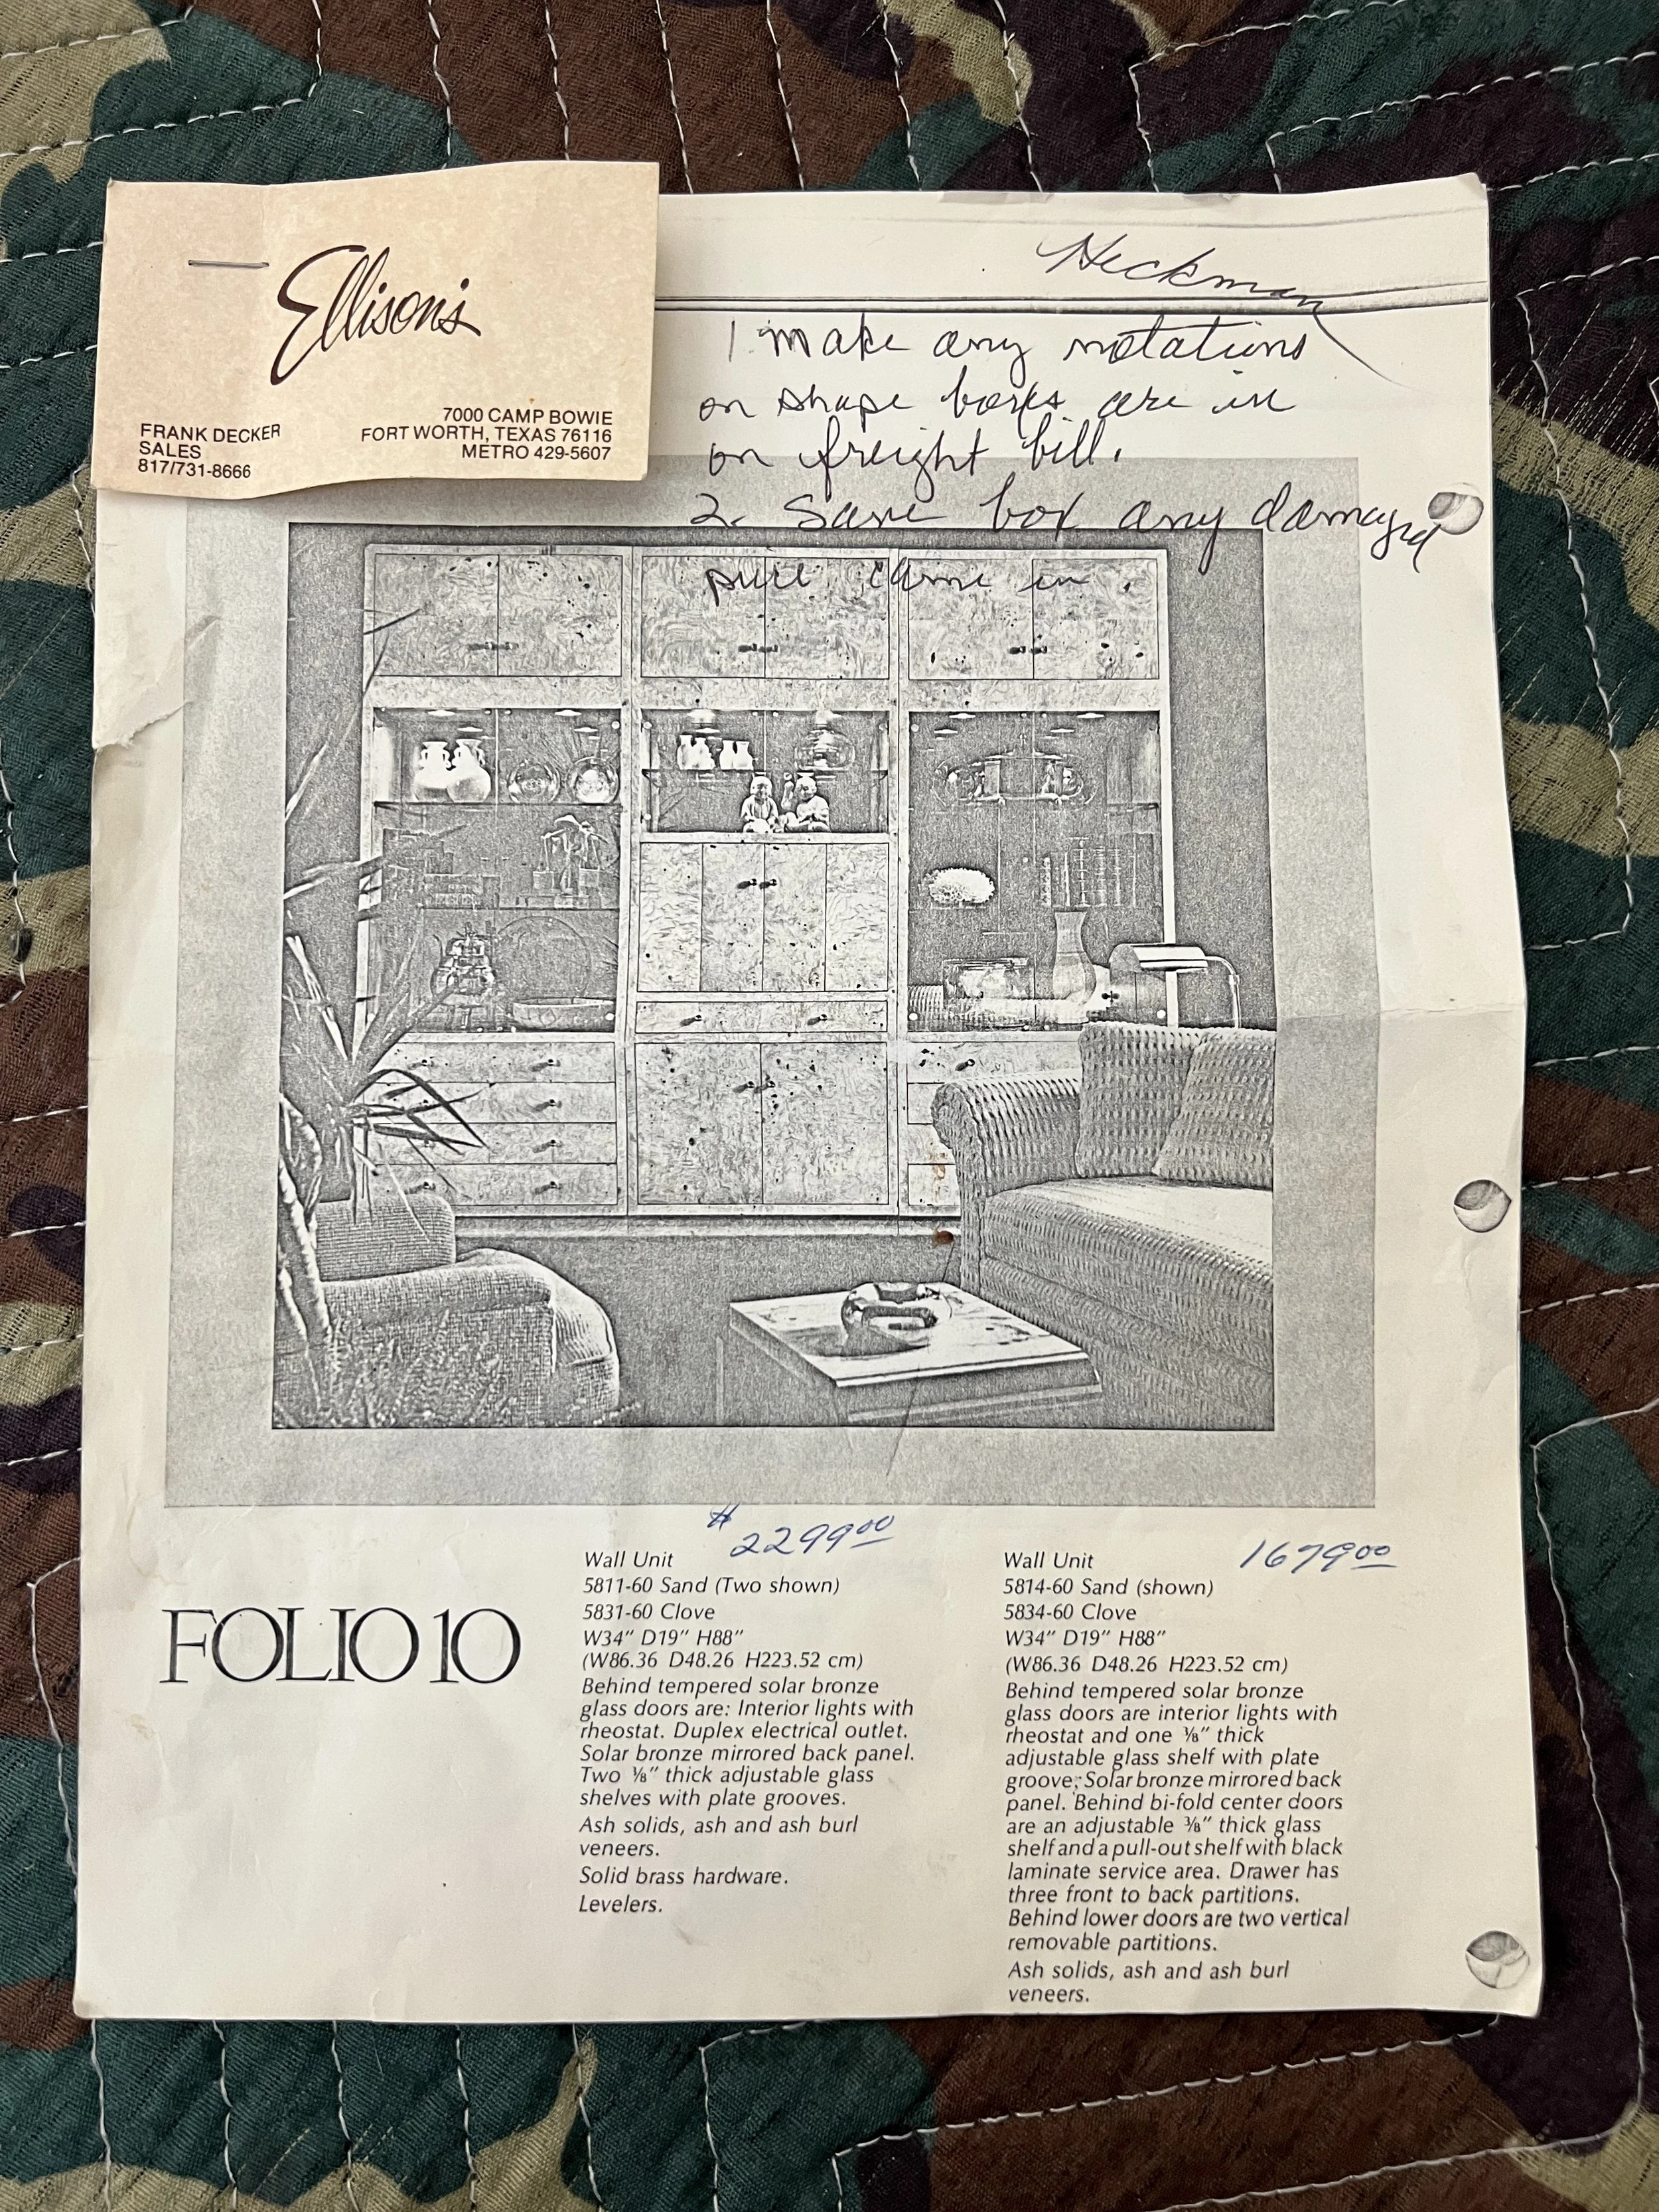 Ellison's
FRANK DECKER
SALES
817/731-8666
7000 CAMP BOWIE
FORT WORTH, TEXAS 76116
METRO 429-5607
Heckman
1. make any notations
on shape boxes are in
on freight bill.
2. Save box any damaged
piece came in.
FOLIO 10
$2299.00
Wall Unit
5811-60 Sand (Two shown)
5831-60 Clove
W34" D19" H88"
(W86.36 D48.26 H223.52 cm)
Behind tempered solar bronze
glass doors are: Interior lights with
rheostat. Duplex electrical outlet.
Solar bronze mirrored back panel.
Two ⅜" thick adjustable glass
shelves with plate grooves.
Ash solids, ash and ash burl
veneers.
Solid brass hardware.
Levelers.
1679.00
Wall Unit
5814-60 Sand (shown)
5834-60 Clove
W34" D19" H88"
(W86.36 D48.26 H223.52 cm)
Behind tempered solar bronze
glass doors are interior lights with
rheostat and one ⅜" thick
adjustable glass shelf with plate
groove; Solar bronze mirrored back
panel. Behind bi-fold center doors
are an adjustable ⅜" thick glass
shelf and a pull-out shelf with black
laminate service area. Drawer has
three front to back partitions.
Behind lower doors are two vertical
removable partitions.
Ash solids, ash and ash burl
veneers.